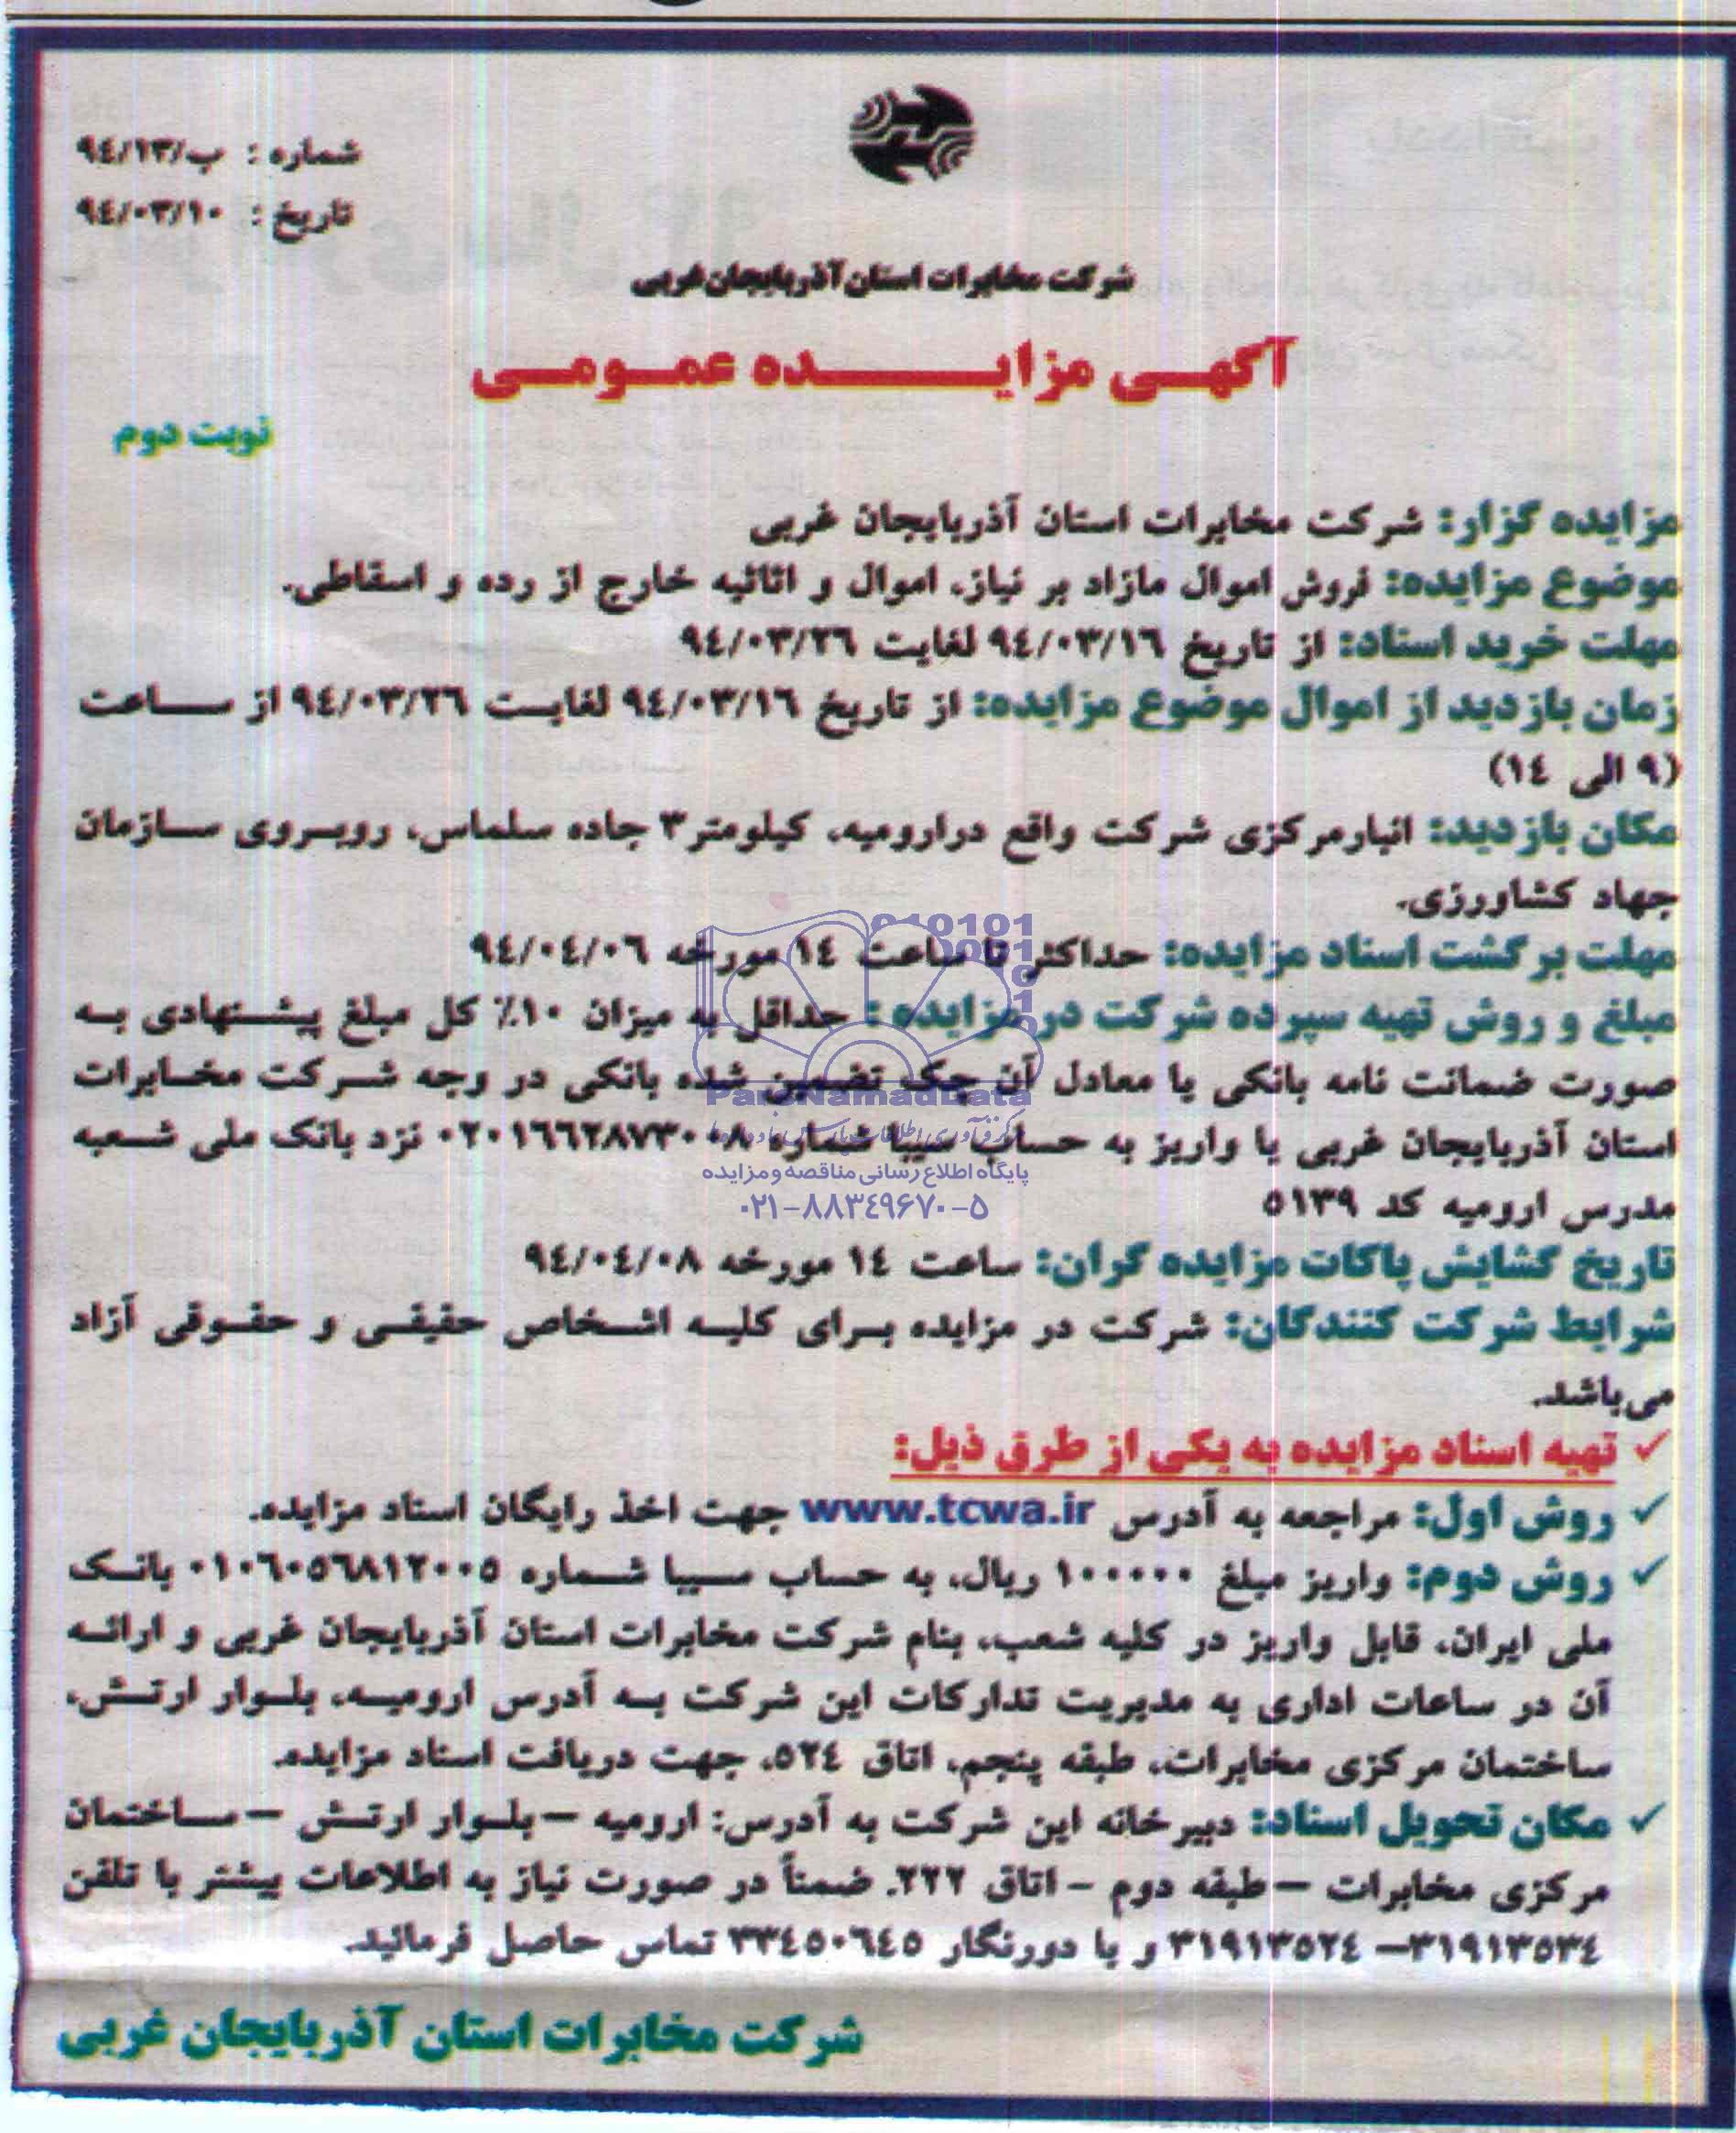 شماره : ب/۹۴/۱۳
تاریخ : ۹۴/۰۳/۱۰
شرکت مخابرات استان آذربایجان غربی
آگهی مزایده عمومی
نوبت دوم
مزایده گزار: شرکت مخابرات استان آذربایجان غربی
موضوع مزایده: فروش اموال مازاد بر نیاز، اموال و اثاثیه خارج از رده و اسقاطی.
مهلت خرید اسناد: از تاریخ ۹۴/۰۳/۱۶ لغایت ۹۴/۰۳/۲۶
زمان بازدید از اموال موضوع مزایده: از تاریخ ۹۴/۰۳/۱۶ لغایت ۹۴/۰۳/۲۶ از ساعت
(۹ الی ۱۴)
مکان بازدید: انبارمرکزی شرکت واقع درارومیه، کیلومتر۳ جاده سلماس، روبروی سازمان
جهاد کشاورزی.
مهلت برگشت اسناد مزایده: حداکثر تا ساعت ۱۴ مورخه ۹۴/۰۴/۰۶
مبلغ و روش تهیه سپرده شرکت در مزایده : حداقل به میزان ۱۰٪ کل مبلغ پیشنهادی به
صورت ضمانت نامه بانکی یا معادل آن چک تضمین شده بانکی در وجه شرکت مخابرات
استان آذربایجان غربی یا واریز به حساب سیبا شماره ۰۲۰۱۶۶۲۸۷۳۰۰۸ نزد بانک ملی شعبه
مدرس ارومیه کد ۵۱۳۹
تاریخ گشایش پاکات مزایده گران: ساعت ۱۴ مورخه ۹۴/۰۴/۰۸
شرایط شرکت کنندگان: شرکت در مزایده برای کلیه اشخاص حقیقی و حقوقی آزاد
می‌باشد.
✓ تهیه اسناد مزایده به یکی از طرق ذیل:
✓ روش اول: مراجعه به آدرس www.tcwa.ir جهت اخذ رایگان اسناد مزایده.
✓ روش دوم: واریز مبلغ ۱۰۰۰۰۰ ریال، به حساب سیبا شماره ۰۱۰۶۰۵۶۸۱۲۰۰۵ بانک
ملی ایران، قابل واریز در کلیه شعب، بنام شرکت مخابرات استان آذربایجان غربی و ارائه
آن در ساعات اداری به مدیریت تدارکات این شرکت به آدرس ارومیه، بلوار ارتش،
ساختمان مرکزی مخابرات، طبقه پنجم، اتاق ۵۲۴، جهت دریافت اسناد مزایده.
✓ مکان تحویل اسناد: دبیرخانه این شرکت به آدرس: ارومیه – بلوار ارتش – ساختمان
مرکزی مخابرات – طبقه دوم – اتاق ۲۲۲. ضمناً در صورت نیاز به اطلاعات بیشتر با تلفن
۳۱۹۱۳۵۳۴– ۳۱۹۱۳۵۲۴ و یا دورنگار ۳۳۴۵۰۶۴۵ تماس حاصل فرمائید.
شرکت مخابرات استان آذربایجان غربی
ParsNamadData
پایگاه اطلاع رسانی مناقصه و مزایده
۰۲۱-۸۸۳۴۹۶۷۰-۵